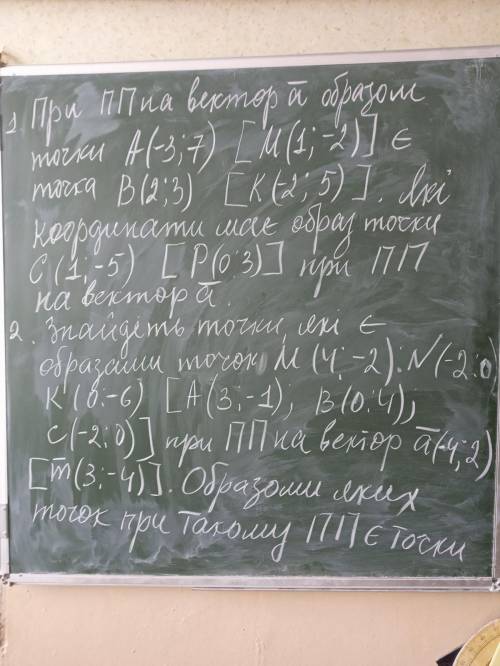 1. При ПП на вектор ā образом
точки А(-3;7) [М(1;-2)] є
точка В(2;3) [К(-2;5)]. Які
координати має образ точки
С(1;-5) [Р(0;3)] при ПП
на вектор ā.
2. Знайдеть точки, які є
образами точок М(4;-2), N(-2;0)
К(0;-6) [А(3;-1), В(0;4),
С(-2;0)] при ПП на вектор ā(-4;2)
[m̄(3;-4)]. Образами яких
точок при такому ПП є точки